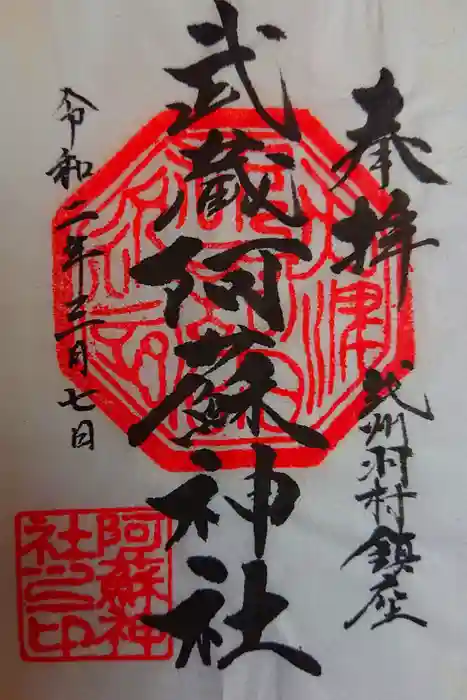 奉拝
武州羽村鎮座
武蔵阿蘇神社
令和二年三月七日
阿蘇神
社之印